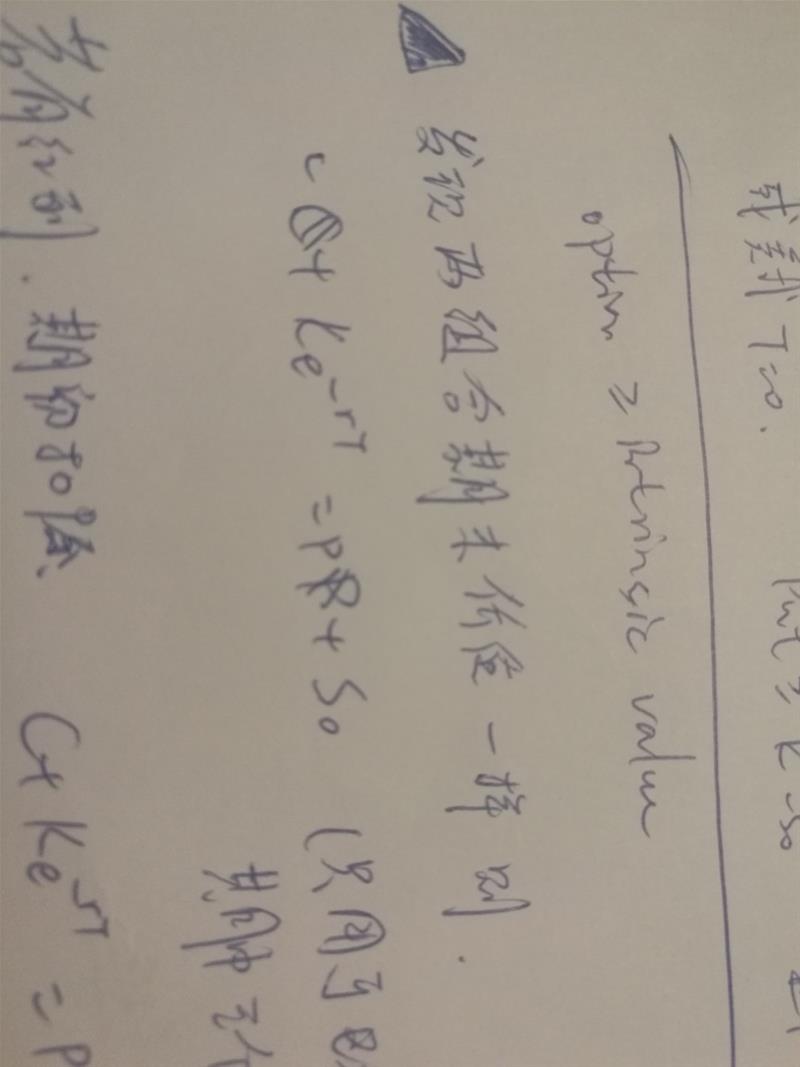 或到 T=0. Put ≥ K-S₀
option ≥ Intrinsic value
发现两组合期末价值一样时.
∴ C+Ke^-rT = P+S₀ (只用于
期中
若有红利. 期初扣除. C+Ke^-rT = P